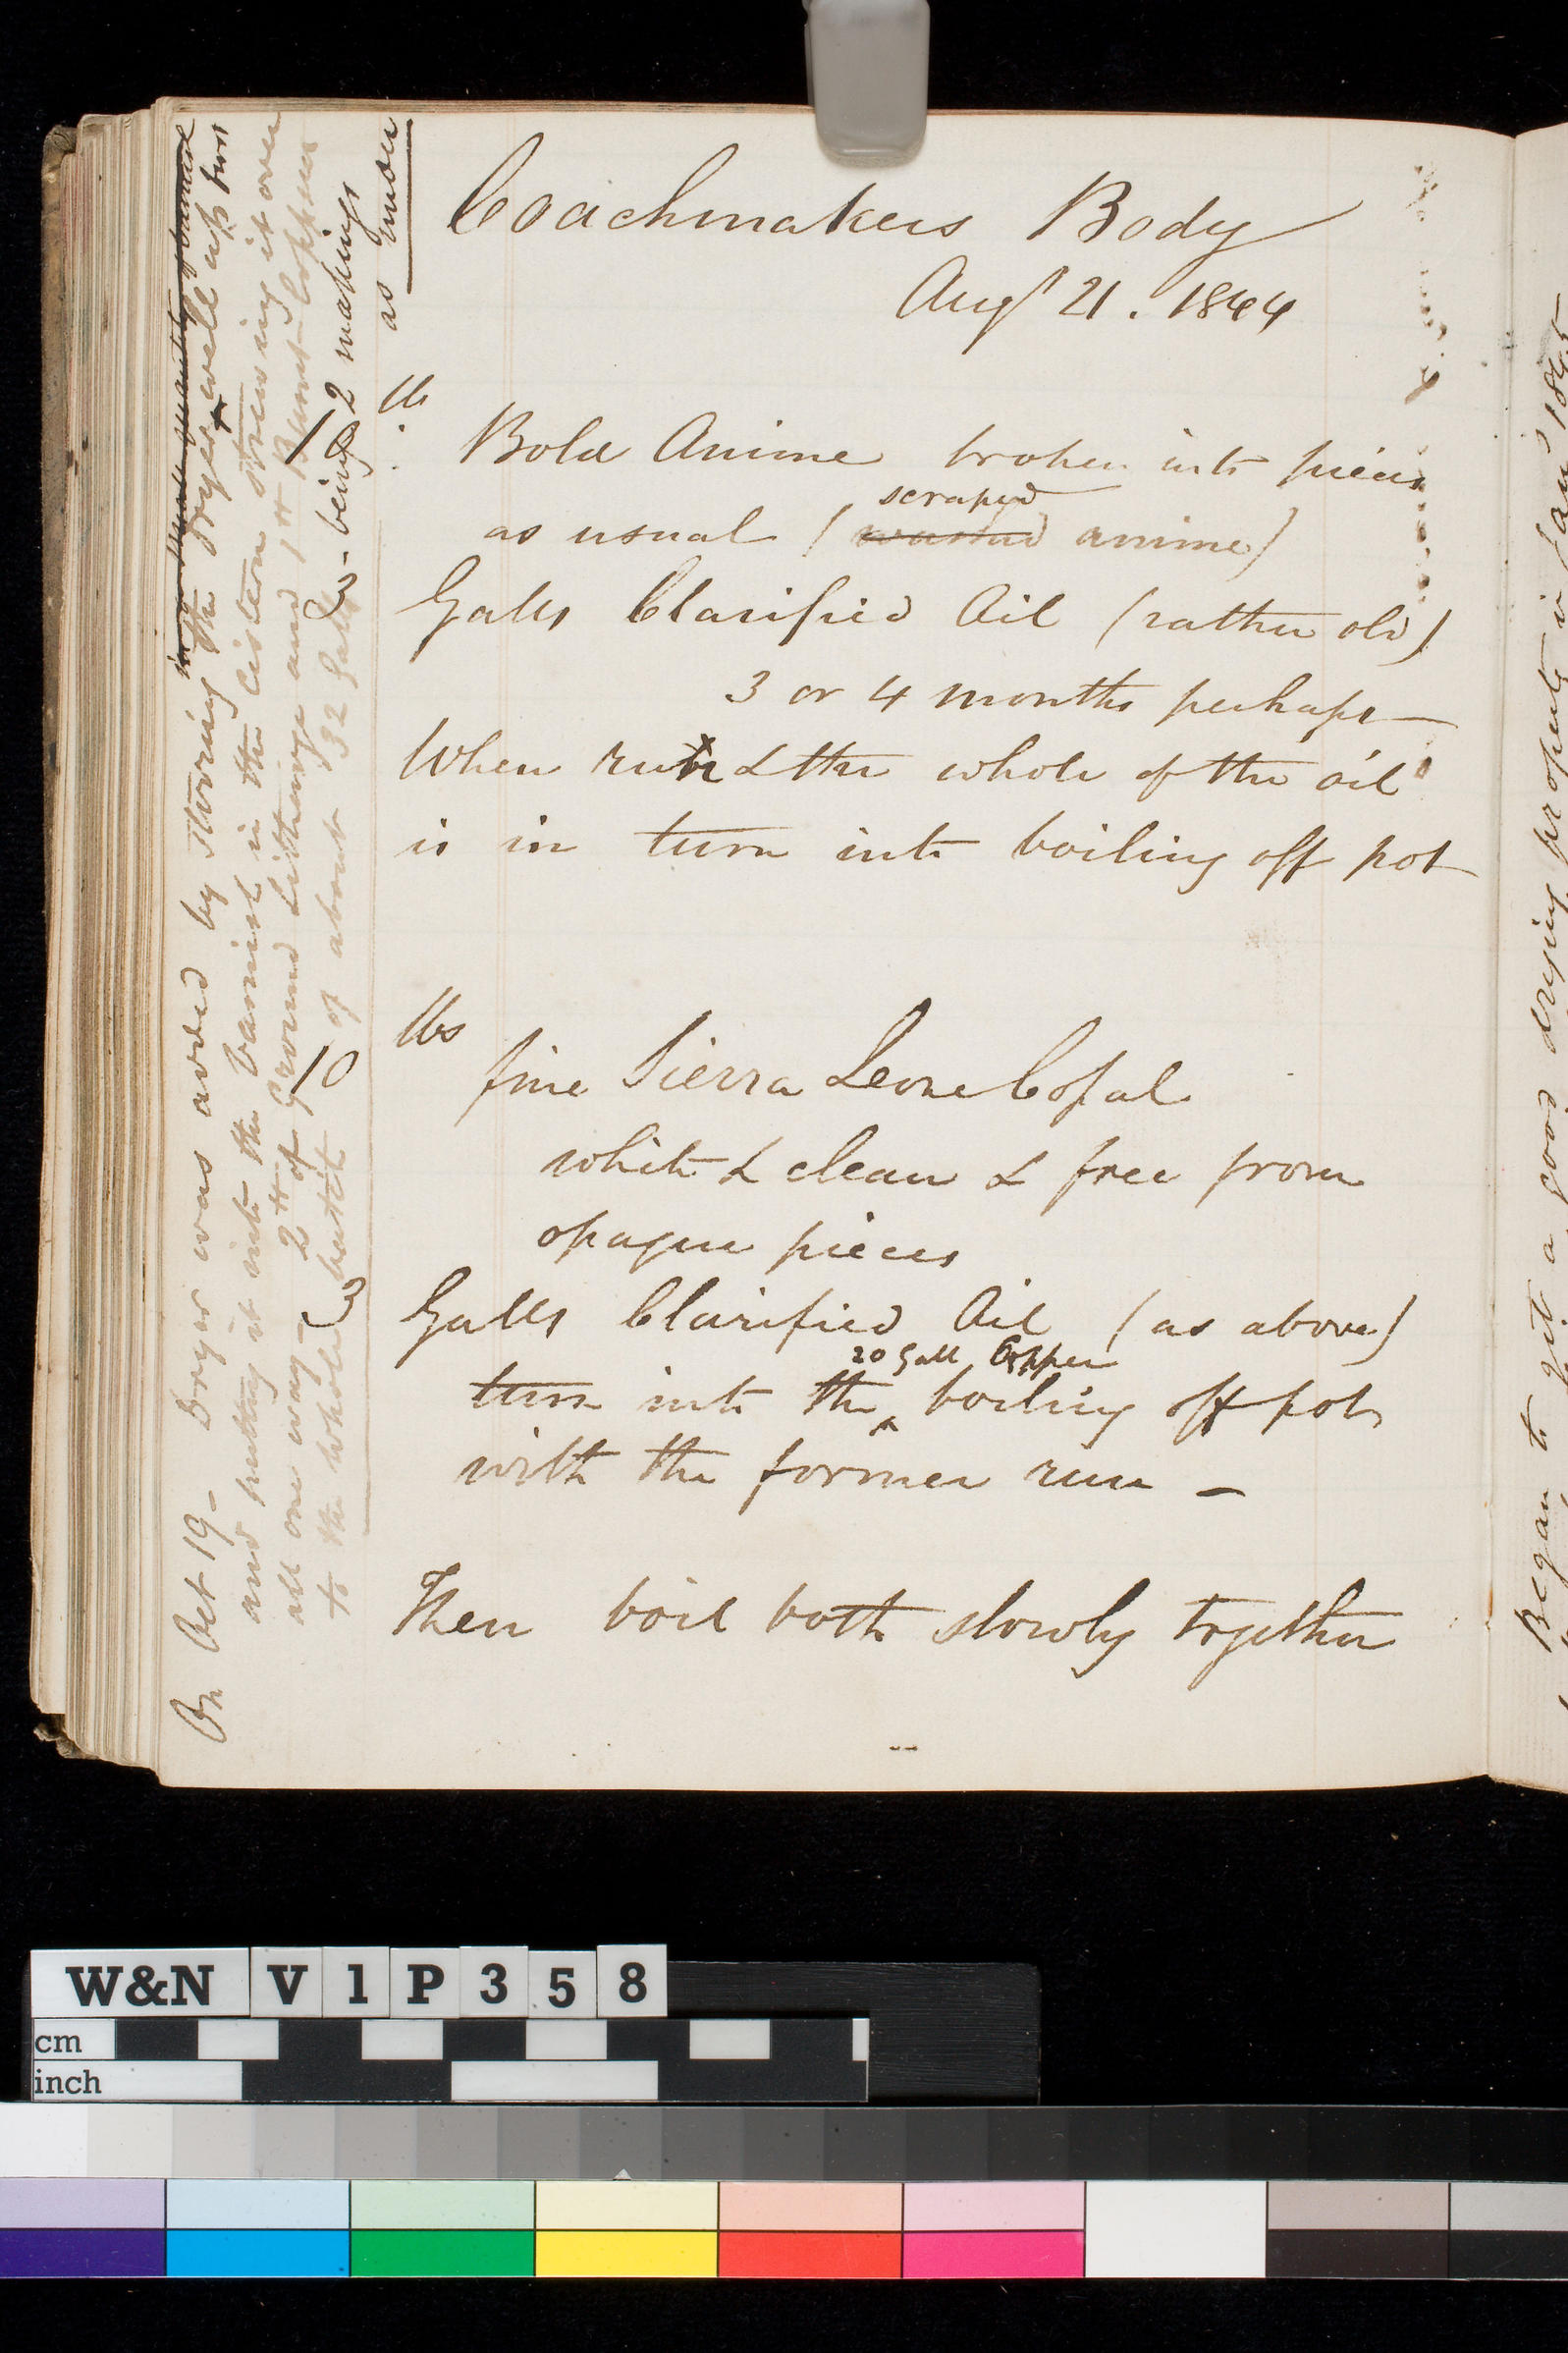 Coachmakers Body
Augt 21. 1844
lb
10 Bold Anime broken into pieces
scraped
as usual (washed anime)
3 Galls Clarified Oil (rather old)
3 or 4 months perhaps —
When run & the whole of the oil
is in turn into boiling off pot
lbs
10 fine Sierra Leone Copal
white & clean & free from
opaque pieces
3 Galls Clarified Oil (as above)
20 Gall Copper
turn into the ^ boiling off pot
with the former run —
Then boil both slowly together
On Oct 19 - Dryer was added by stirring the dryer well up
and putting it into the varnish in the cistern strewing it over
all one way - 2 lb of Ground Litharge and 1 lb Burnt Copperas
to the whole batch of about 32 Galls - being 2 makings
as under
Began to get a good drying property in Jany 1845
W&N V 1 P 3 5 8
cm
inch